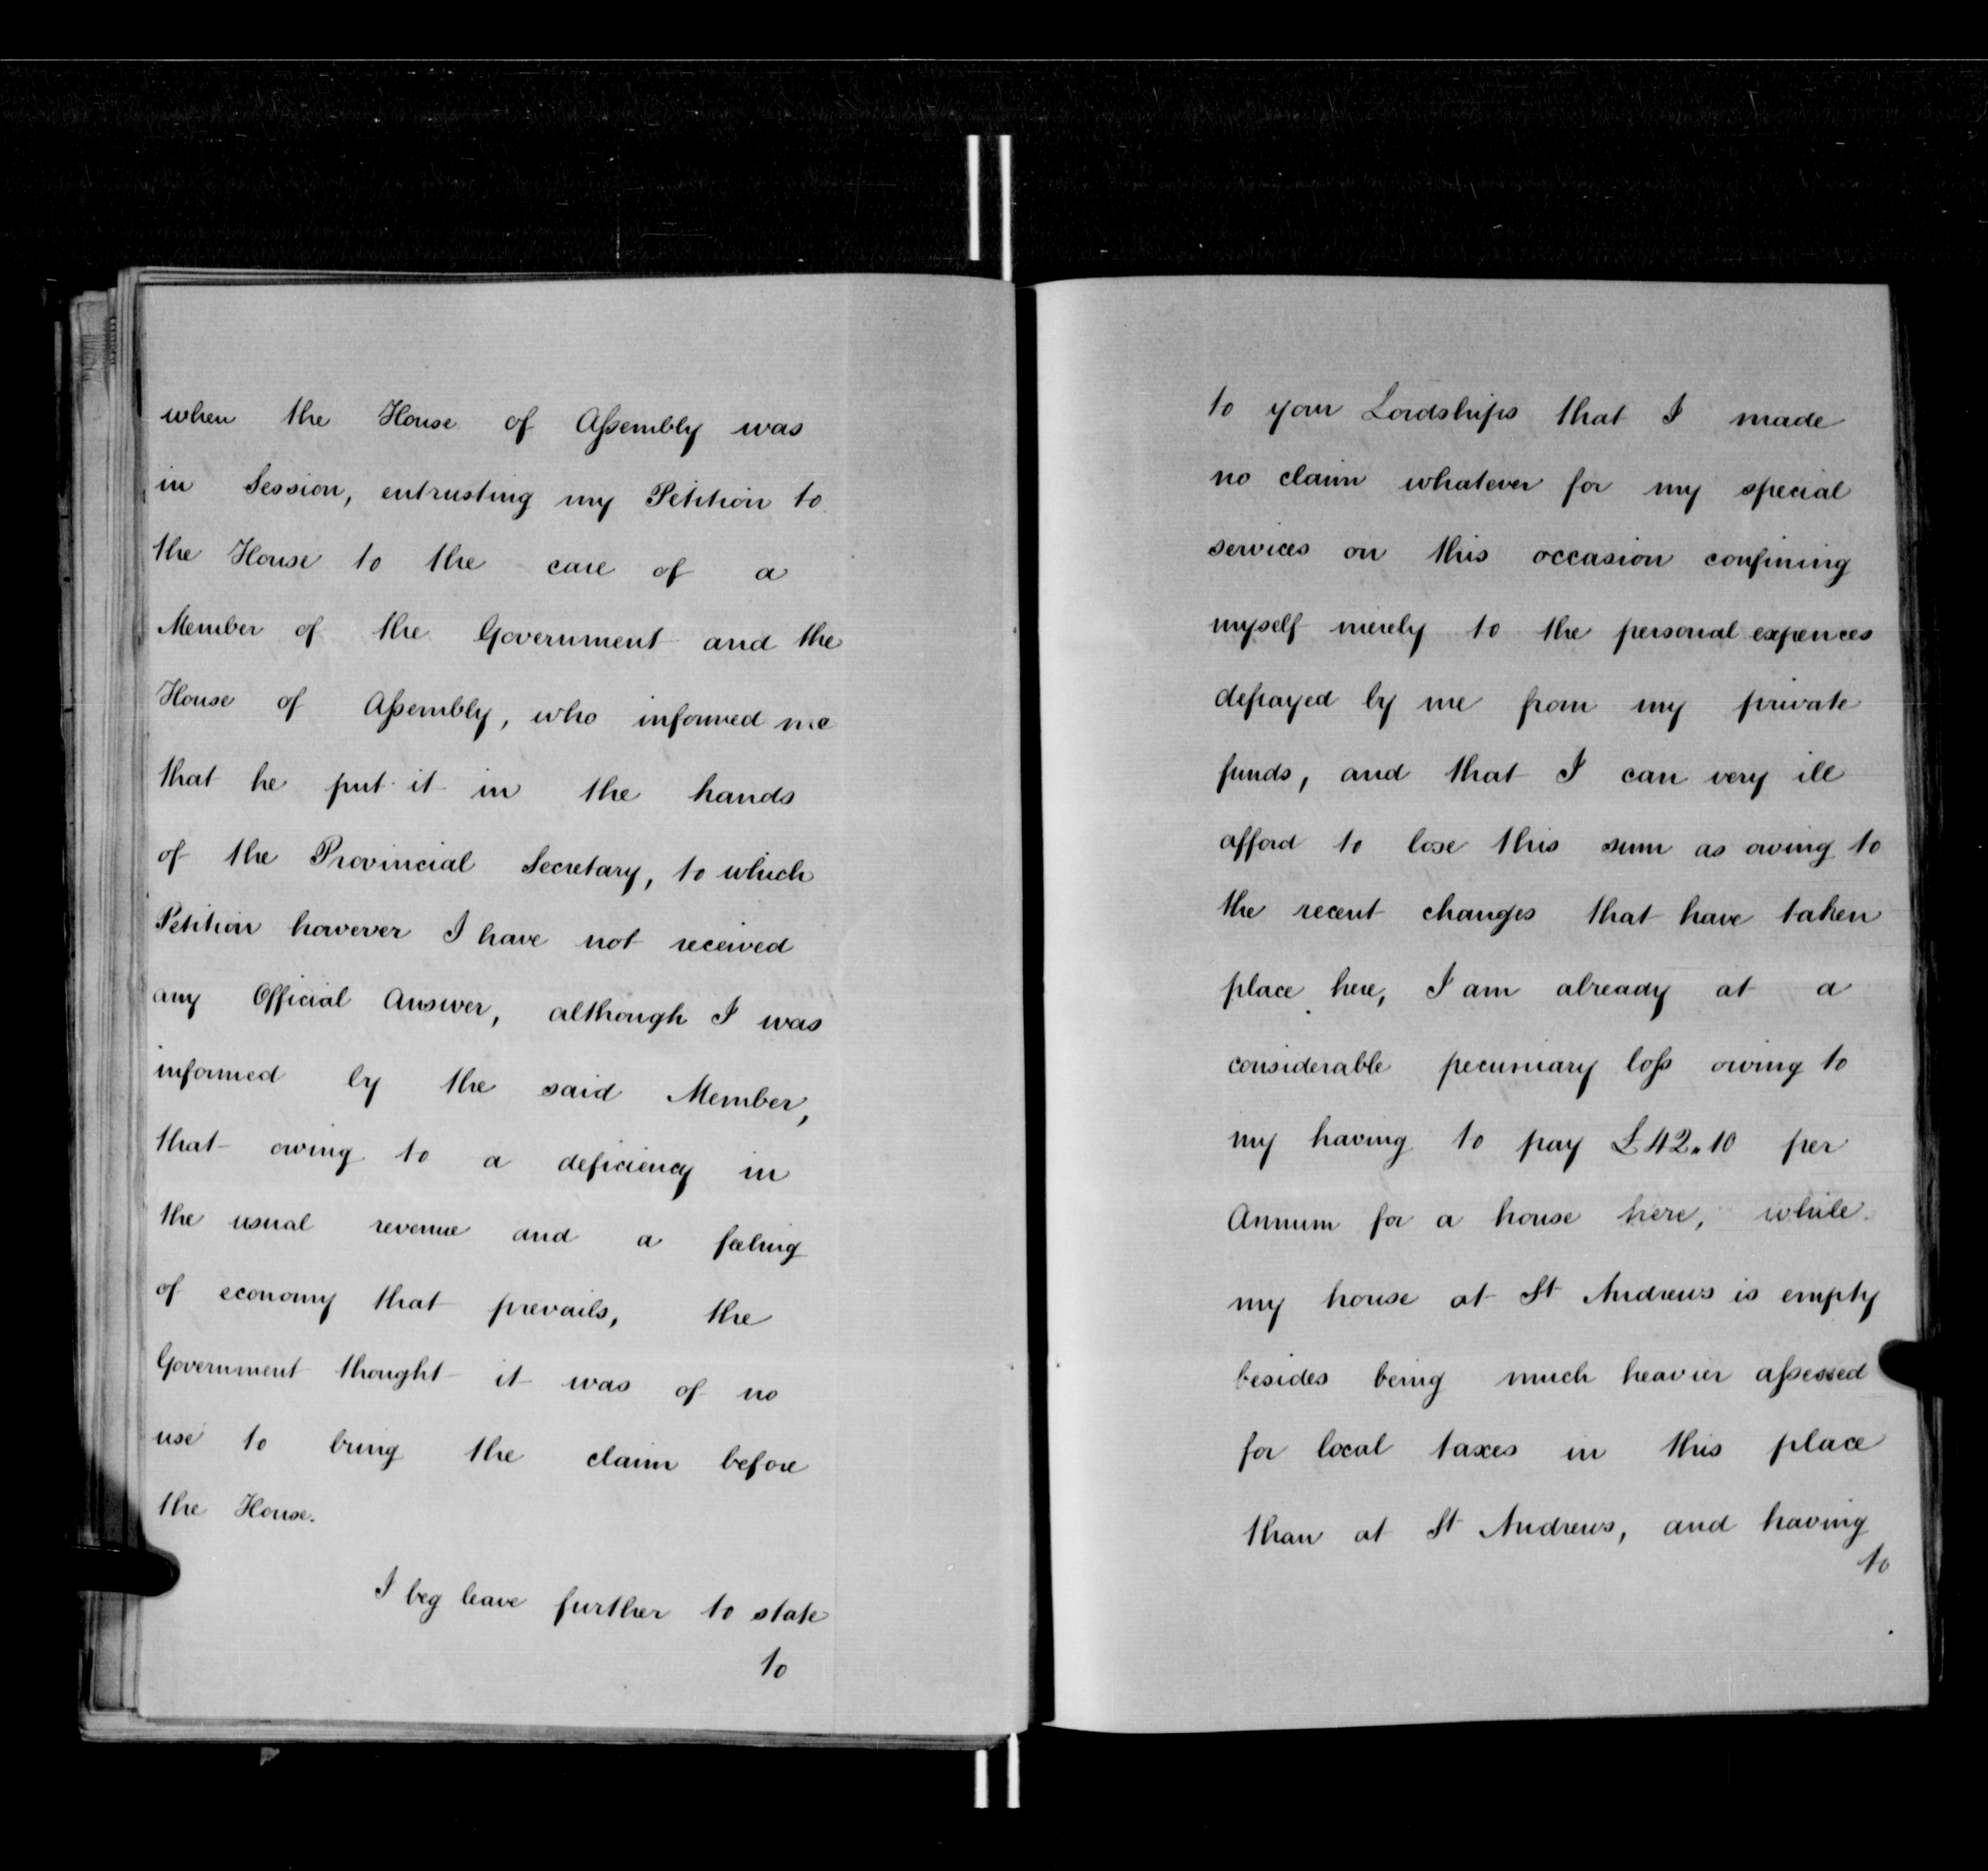 when the House of Assembly was
in Session, entrusting my Petition to
the House to the care of a
Member of the Government and the
House of Assembly, who informed me
that he put it in the hands
of the Provincial Secretary, to which
Petition however I have not received
any Official Answer, although I was
informed by the said Member,
that owing to a deficiency in
the usual revenue and a feeling
of economy that prevails, the
Government thought it was of no
use to bring the claim before
the House.
I beg leave further to state
to
to your Lordships that I made
no claim whatever for my special
services on this occasion confining
myself merely to the personal expences
defrayed by me from my private
funds, and that I can very ill
afford to lose this sum as owing to
the recent changes that have taken
place here, I am already at a
considerable pecuniary loss owing to
my having to pay £42.10 per
Annum for a house here, while
my house at St Andrews is empty
besides being much heavier assessed
for local taxes in this place
than at St Andrews, and having
to